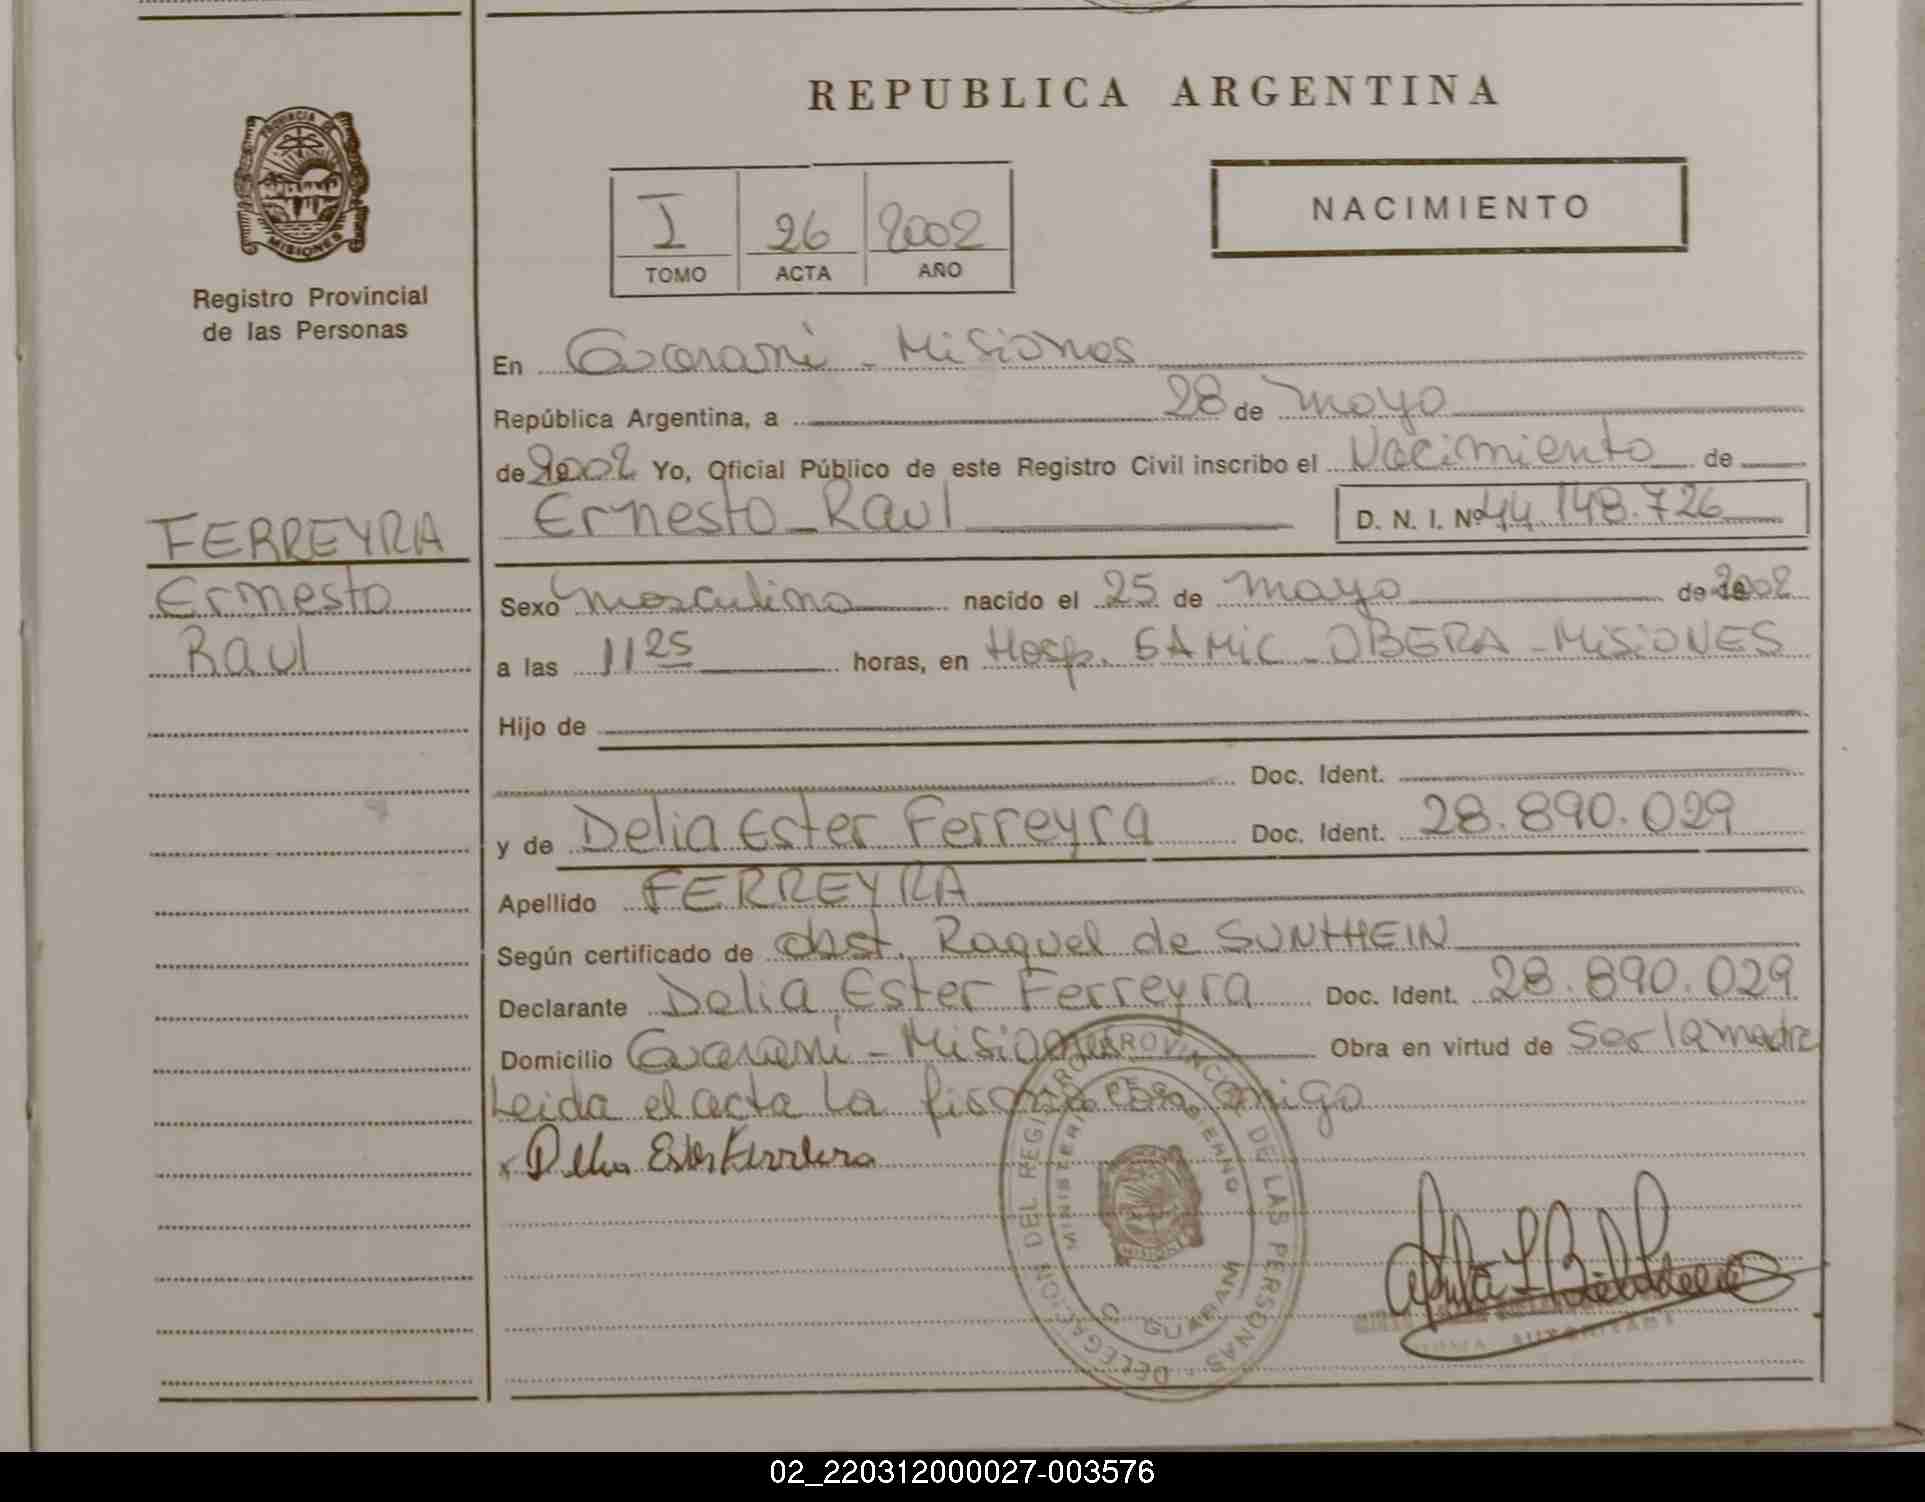 REPUBLICA ARGENTINA
PROVINCIA DE
MISIONES
Registro Provincial
de las Personas
I 26 2002
TOMO ACTA AÑO
NACIMIENTO
En Guarani - Misiones
República Argentina, a 28 de mayo
de 2002 Yo, Oficial Público de este Registro Civil inscribo el Nacimiento de
Ernesto Raul D. N. I. Nº 44.148.726
FERREYRA
Ernesto
Raul
Sexo masculino nacido el 25 de mayo de 2002
a las 11 25 horas, en Hosp. SAMIC - OBERA - MISIONES
Hijo de
Doc. Ident.
y de Delia Ester Ferreyra Doc. Ident. 28.890.029
Apellido FERREYRA
Según certificado de obst. Raquel de SUNTHEIN
Declarante Delia Ester Ferreyra Doc. Ident. 28.890.029
Domicilio Guarani - Misiones Obra en virtud de ser la madre
Leida el acta la firma conmigo
x Delia Ester Ferreira
DELEGACION DEL REGISTRO PROVINCIAL DE LAS PERSONAS
MINISTERIO DE GOBIERNO
MISIONES
GUARANI
02_220312000027-003576